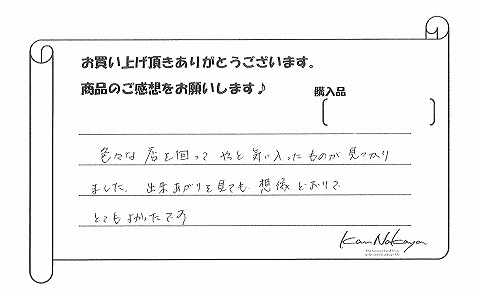 お買い上げ頂きありがとうございます。
商品のご感想をお願いします♪
購入品
色々な店を回って やっと気に入ったものが見つかり
ました。出来あがりを見ても 想像どおりで
とてもよかったです
Kan Nakaya